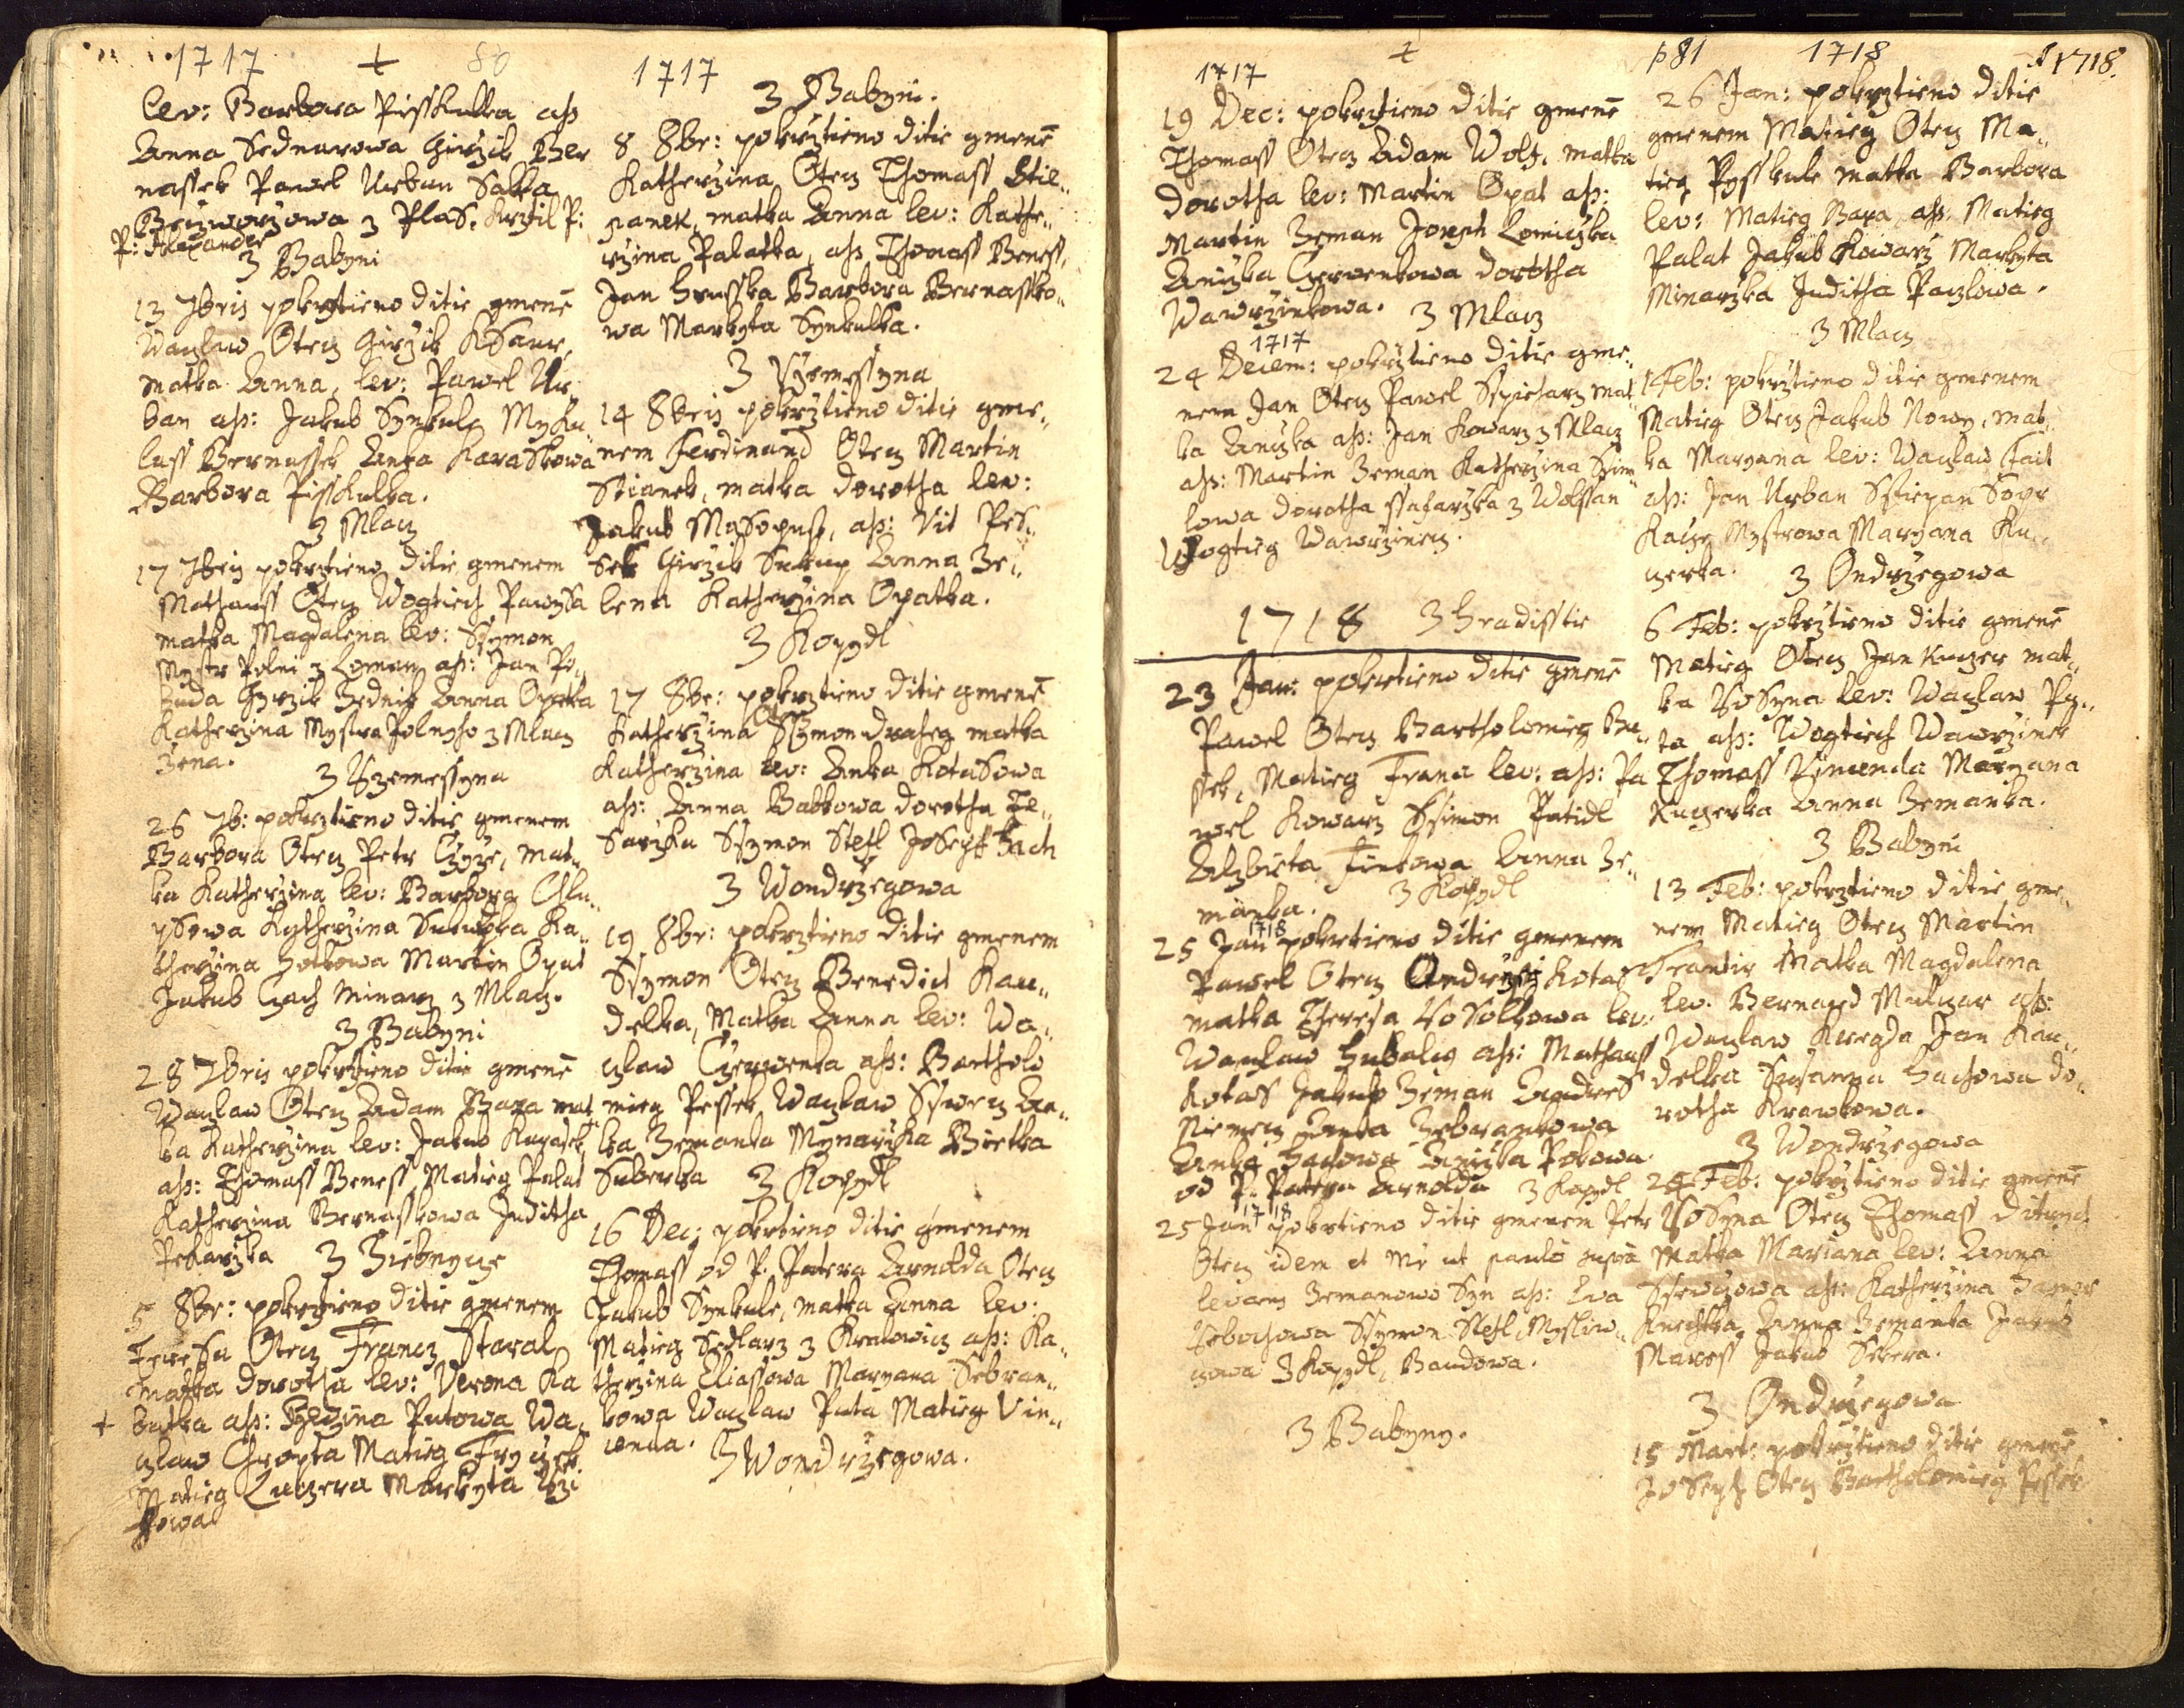 1717 + 80
lev: Barbora Pisskulka ass
Anna Sednarowa Girzik Ber
nassek Pawel Urban Salka
z Plas. Krztil P:
P: Alexander
z Babyni
13 7bris pokrztieno ditie gmenē
Waczlaw Otecz Girzik
matka Anna, lev: Pawel Ur„
ban ass: Jakub Synkule Myku„
lass Bernassek Anka Karaskowa
Barbora Pisskulka.
z Mlacz
17 7bris pokrztieno ditie gmenem
Mathauss Otecz Wogtiech
matka Magdalena lev: Ssymon
Mystr Polni z Loman ass: Jan Po„
Zednik Anna Opatka
Katherzina Mystra Polnyho z Mlacz
žena.
z Vzemessyna
26 7b: pokrztieno ditie gmenem
Barbora Otecz Petr Czyze, mat„
ka Katherzina lev: Barbora
Katherzina Ka„
therzina Martin Opat
Jakub Czach Minarz z Mlacz.
z Babyni
28 7bris pokrztieno ditie gmenē
Waczlaw Otecz Adam Baxa mat„
ka Katherzina lev: Jakub
ass: Thomass Beness Matieg Palat
Katherzina Bernasskowa Juditha
Pekarzka z Hiebnycze
5 8br: pokrztieno ditie gmenem
Teresa Otecz Francz Staral
matka Dorotha lev: Verona Ka
+ batka ass: Putowa Wa„
czlaw Chropta Matieg Fryczek
Matieg Kuczera Markyta
1717
z Babyni.
8 8br: pokrztieno ditie gmenē
Katherzina Otecz Thomass Stie„
panek, matka Anna lev: Kathe„
rzina Palatka, ass Thomass Beness,
Jan Hrusska Barbora Bernassko„
wa Markyta Synkulka.
z Vzemessyna
14 8bris pokrztieno ditie gme„
nem Ferdinand Otecz Martin
Stianek, matka Dorotha lev:
Jakub Masopust, ass: Vit Pes„
sek Girzik Sukup Anna Ze„
lena Katherzina Opatka.
z Kopydl
17 8br: pokrztieno ditie gmenē
Katherzina Otec Ssymon Draheg matka
Katherzina lev: Anka Kotasowa
ass: Anna Babkowa Dorotha Te„
sarzka Ssymon Stefl Joseph Hach
z Wondrzegowa
19 8br: pokrztieno ditie gmenem
Ssymon Otecz Benedict Kau„
delka, Matka Anna lev: Wa„
czlaw Czerwenka ass: Bartholo
mieg Pessek Waczlaw Sswecz An„
ka Zemanka Mynarzka Bietka
Suberka z Kopydl
16 Dec: pokrtieno ditie gmenem
Thomass od P. Patera Arnolda Otecz
Jakub Synkule, matka Anna lev:
Matieg Sedlarz z Kralowicz ass: Ka„
therzina Eliassowa Maryana Sebran„
kowa Waczlaw Puta Matieg Vin„
cenda.
z Wondrzegowa.
1717 +
19 Dec: pokrztieno ditie gmenē
Thomass Otecz Adam Wolf, matka
Dorotha lev: Martin Opat ass:
Martin Zeman Joseph Lomiczka
Aniczka Czerwenkowa Dorotha
Wawrzinkowa. z Mlacz
1717
24 Decem: pokrztieno ditie gme„
nem Jan Otecz Pawel Sspicharz mat„
ka Aniczka ass: Jan Kowarz z Mlacz
ass: Martin Zeman Katherzina Ssim„
lowa Dorotha ssafarzka z Wolssan
Wogtieg Wawrzinecz.
1718 z Hradisstie
23 Jan: pokrtieno ditie gmenē
Pawel Otecz Bartholomieg Bu„
ssek, Matieg Frana lev: ass: Pa
wel Kowarz Ssimon Patidl
Alzbieta Finkowa Anna Ze„
manka. z Kopydl
1718
25 Jan pokrtieno ditie gmenem
Pawel Otecz Andrysg Kotas
matka Theresa lev:
Waczlaw ass: Mathauss
Kotas Jakub Zeman Andres
Niemecz Anna Zebrankowa
Anka Hachowa Aniczka Pokowa
od P. Patera Arnolda z Kopydl
1718
25 Jan pokrtieno ditie gmenem Petr
Otecz idem et Mr ut paulo supra
levans Zemanowo Syn ass: Ewa
Ssymon Stefl, Mysliw„
czowa z Kopydl, Baudowa.
z Babyny.
p 81 1718 A 1718.
26 Jan: pokrztieno ditie
gmenem Matieg Otecz Ma„
tieg Pysskule matka Barbora
lev: Matieg Baxa ass: Matieg
Palat Jakub Kowarz Markyta
Minarzka Juditha Paczlowa.
z Mlacz
1 Feb: pokrztieno ditie gmenem
Matieg Otecz Jakub Nowy, mat„
ka Maryana lev: Waczlaw Fait
ass: Jan Urban Sstiepan
Mystrowa Maryana Ku„
czerka. z Ondrzegowa
6 Feb: pokrztieno ditie gmenē
Matieg Otecz Jan Kuczer mat„
ka Rosyna lev: Waczlaw Pu„
ta ass: Wogtiech Wawrzinek
Thomass Vincenda Maryana
Kuczerka Anna Zemanka.
z Babyni
13 Feb: pokrztieno ditie gme„
nem Matieg Otecz Martin
Frantiz Matka Magdalena
lev. Bernard Mulczar ass:
Waczlaw Kuegda Jan Kau„
delka Susanna Hachowa Do„
rotha Krawkowa.
z Wondrzegowa
24 Feb: pokrztieno ditie gmenē
Rosyna Otecz Thomass
Matka Mariana lev: Anna
Sswczowa ass: Katherzina
Anna Zemanka Jakub
Maress Jakub Sekera.
z Ondrzegowa
15 Mart: pokrztieno ditie gmenē
Joseph Otecz Bartholomieg Pessek